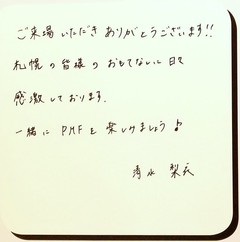 ご来場いただきありがとうございます!!
札幌の皆様のおもてなしに日々
感激しております.
一緒に PMFを楽しみましょう♪
清水 梨衣